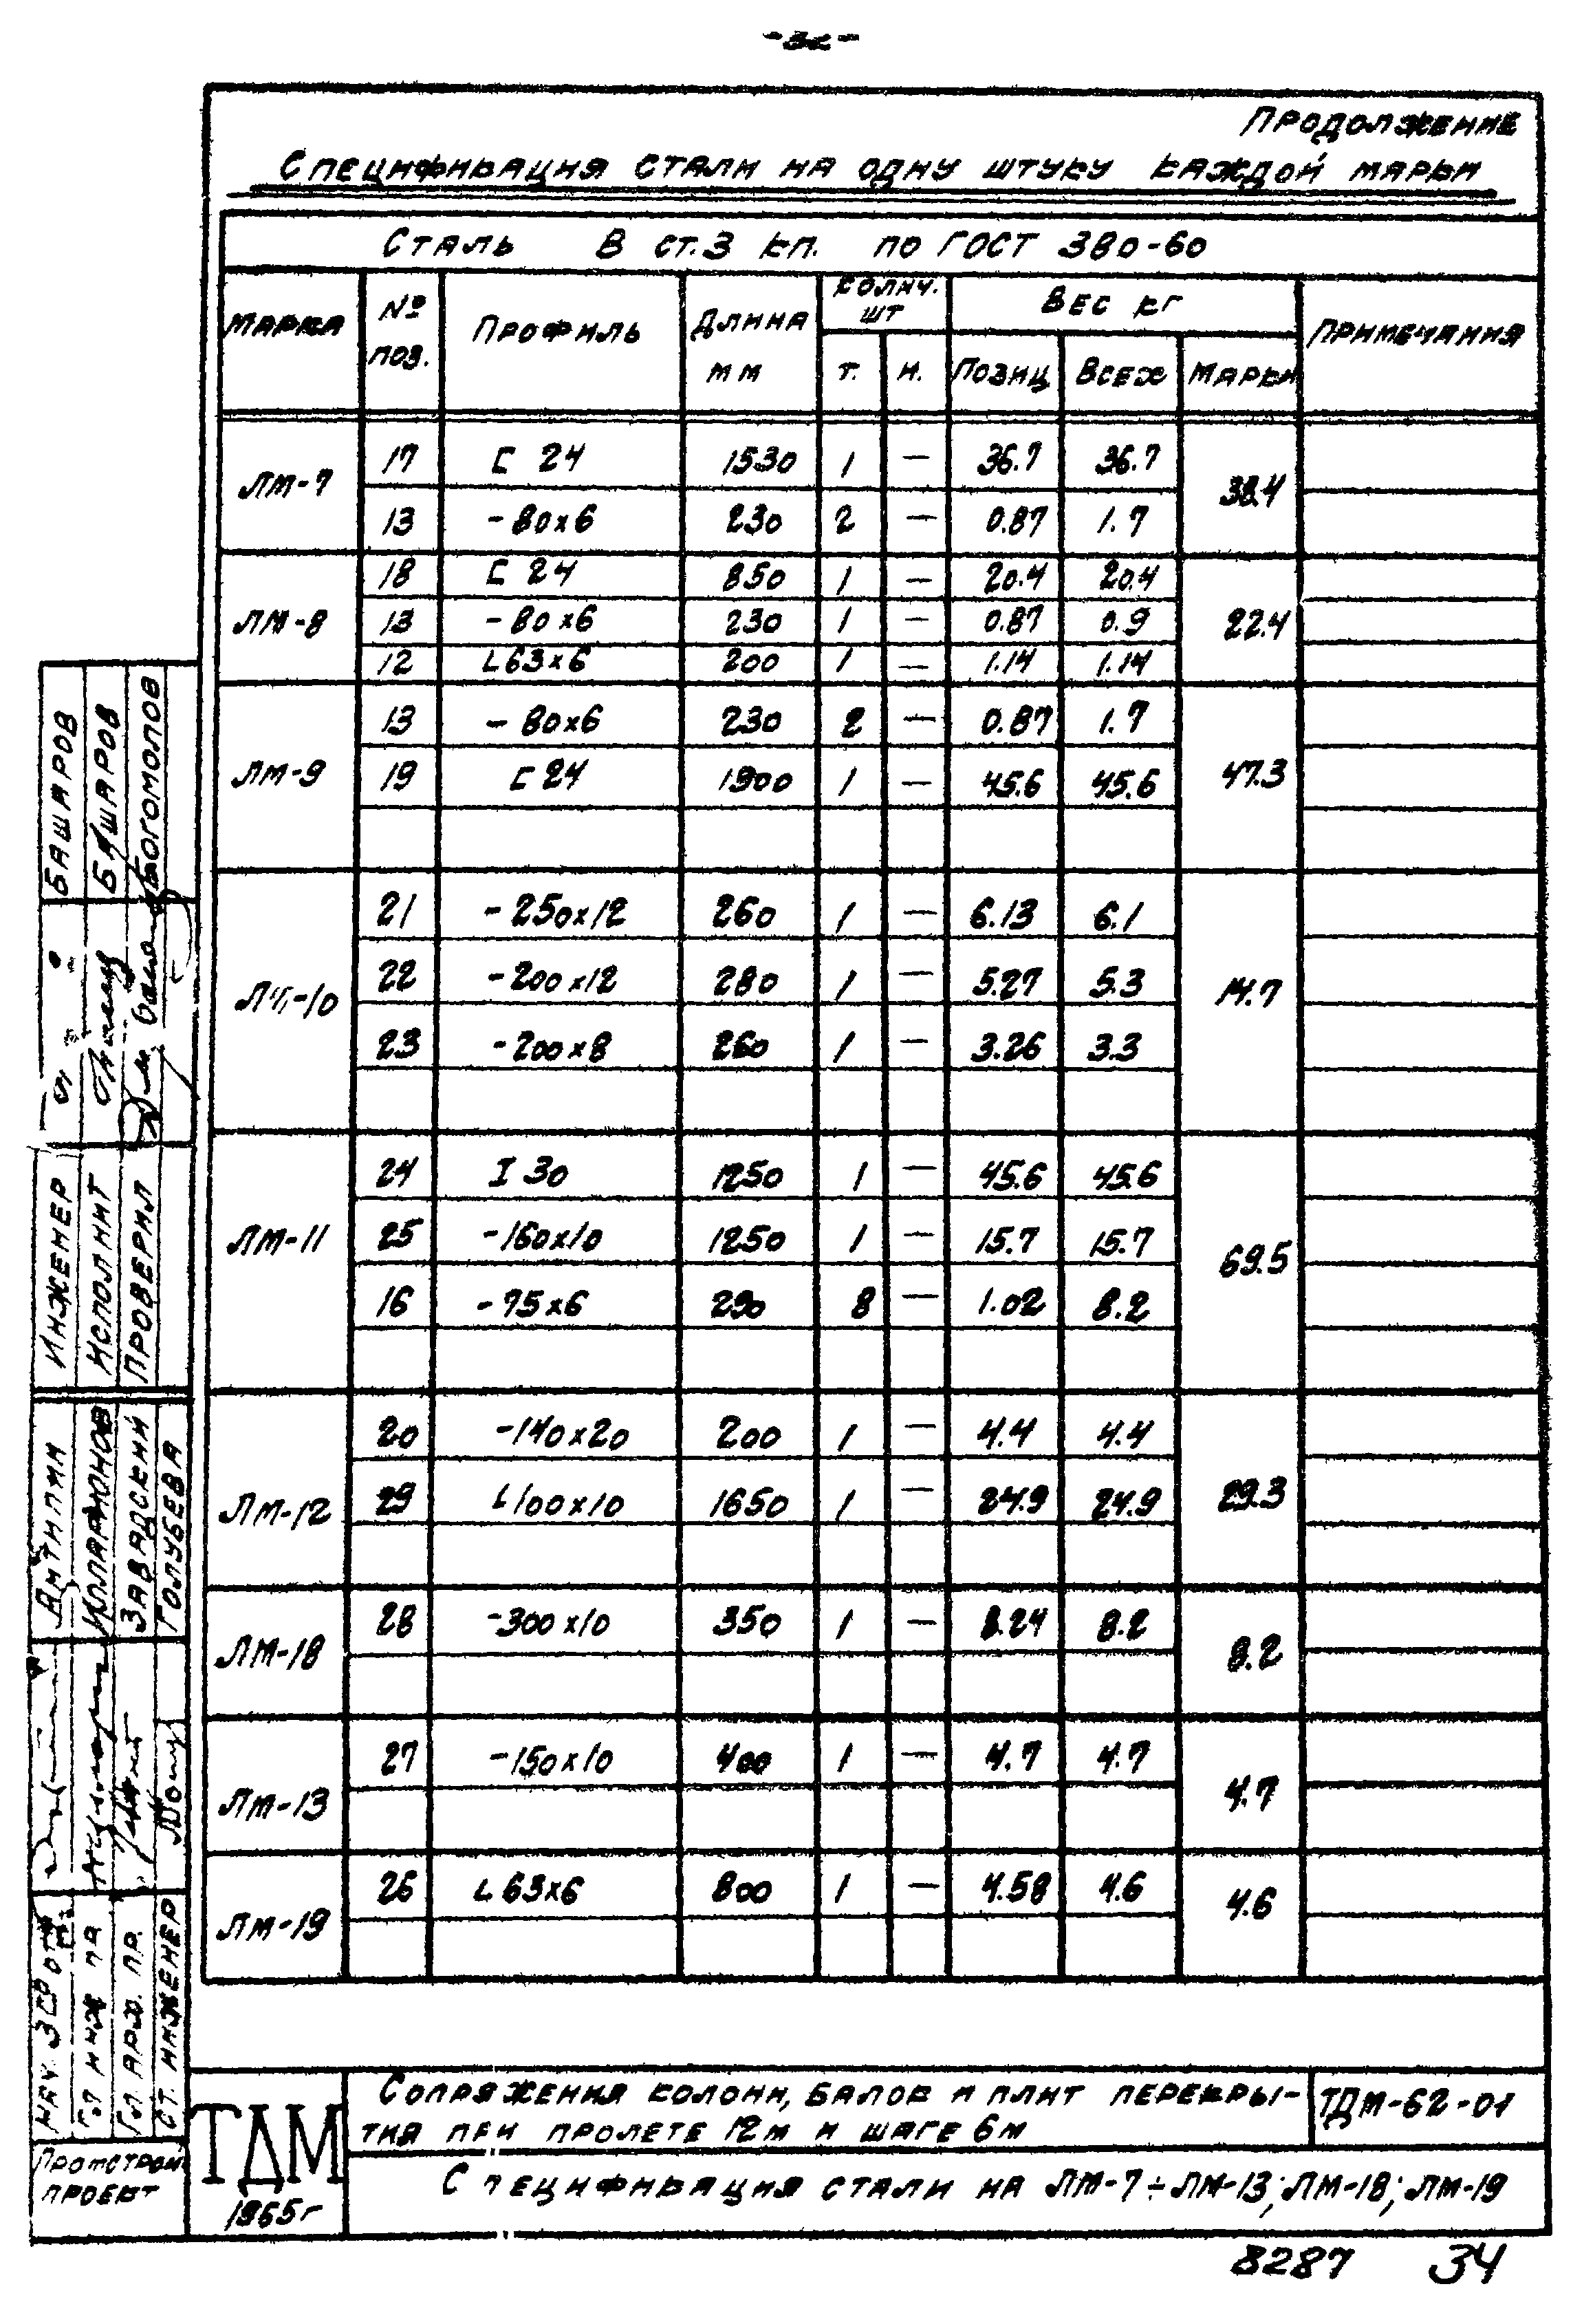 -32-
Продолжение
Спецификация стали на одну штуку каждой марки
Сталь В ст.3 кп. по ГОСТ 380-60
Марка № поз. Профиль Длина мм Колич. шт Вес кг Примечания
т. н. Позиц Всех Марки
ЛМ-7 38.4
17 [ 24 1530 1 — 36.7 36.7
13 -80х6 230 2 — 0.87 1.7
ЛМ-8 22.4
18 [ 24 850 1 — 20.4 20.4
13 -80х6 230 1 — 0.87 0.9
12 L63х6 200 1 — 1.14 1.14
ЛМ-9 47.3
13 -80х6 230 2 — 0.87 1.7
19 [ 24 1900 1 — 45.6 45.6
ЛМ-10 14.7
21 -250х12 260 1 — 6.13 6.1
22 -200х12 280 1 — 5.27 5.3
23 -200х8 260 1 — 3.26 3.3
ЛМ-11 69.5
24 I 30 1250 1 — 45.6 45.6
25 -160х10 1250 1 — 15.7 15.7
16 -75х6 290 8 — 1.02 8.2
ЛМ-12 29.3
20 -140х20 200 1 — 4.4 4.4
29 L100х10 1650 1 — 24.9 24.9
ЛМ-18 8.2
28 -300х10 350 1 — 8.24 8.2
ЛМ-13 4.7
27 -150х10 400 1 — 4.7 4.7
ЛМ-19 4.6
26 L63х6 800 1 — 4.58 4.6
Инженер Башаров
Исполнит Башаров
Проверил Богомолов
Нач.
Гл инж пр Илларионов
Гл арх. пр. Завадский
Ст. инженер Голубева
Промстрой-
проект
ТДМ
1965г
Сопряжения колонн, балок и плит перекры-
тия при пролете 12м и шаге 6м
ТДМ-62-01
Спецификация стали на ЛМ-7÷ЛМ-13; ЛМ-18; ЛМ-19
8287 34